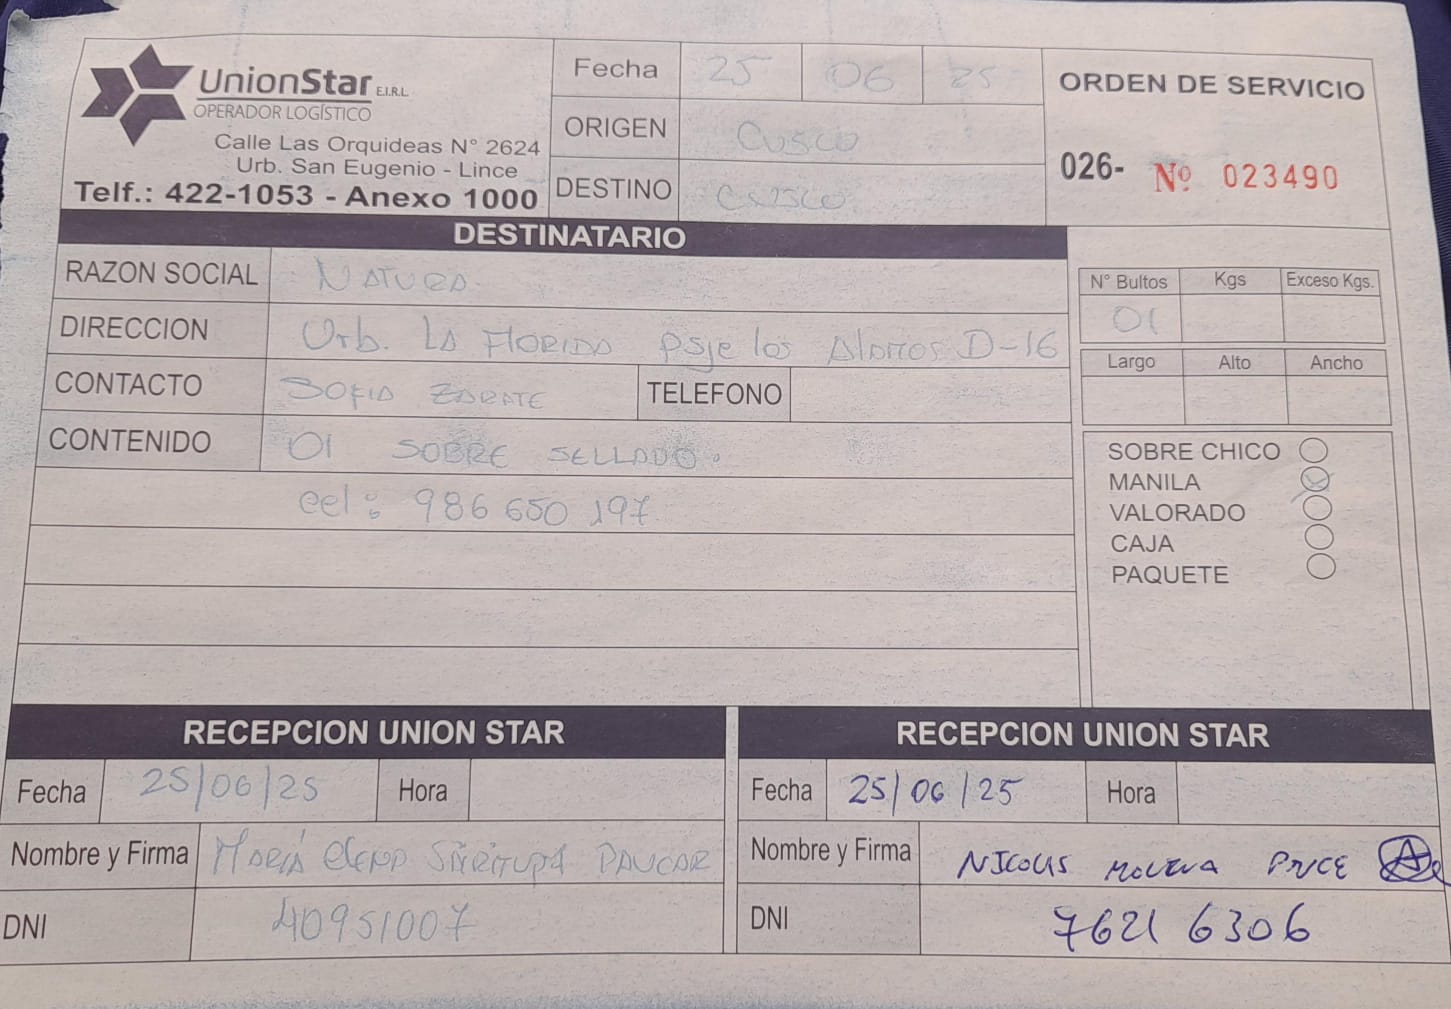 UnionStar E.I.R.L.
OPERADOR LOGÍSTICO
Calle Las Orquideas N° 2624
Urb. San Eugenio - Lince
Telf.: 422-1053 - Anexo 1000
Fecha 25 06 25
ORIGEN Cusco
DESTINO Cusco
ORDEN DE SERVICIO
026- Nº 023490
DESTINATARIO
RAZON SOCIAL NATURA.
DIRECCION Urb. LA FLORIDA Psje los Alamos D-16
CONTACTO SOFIA ZARATE TELEFONO
CONTENIDO 01 SOBRE SELLADO.
cel: 986 650 197
N° Bultos Kgs Exceso Kgs.
01
Largo Alto Ancho
SOBRE CHICO
MANILA
VALORADO
CAJA
PAQUETE
RECEPCION UNION STAR
Fecha 25/06/25 Hora
Nombre y Firma MARIA Elena PAUCAR
DNI 40951007
RECEPCION UNION STAR
Fecha 25/06/25 Hora
Nombre y Firma
DNI 76216306